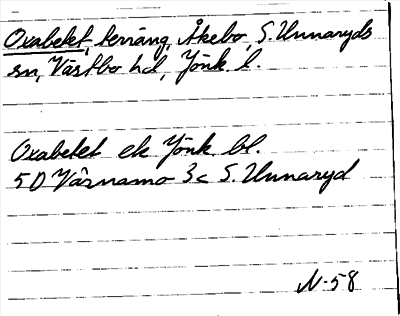 Oxabetet, terräng, Åkebo, S. Unnaryds
sn, Västbo hd, Jönk. l.
Oxabetet ek Jönk. bl.
5D Värnamo 3c S. Unnaryd
N-58